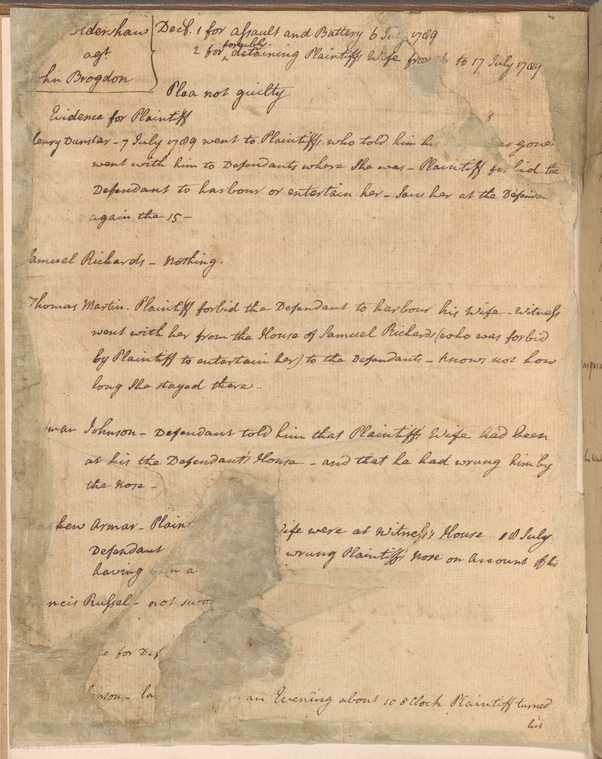 idershaw Decl. 1 for assault and Battery 6 July 1789
agt 2 for forcibly detaining Plaintiffs Wife from to 17 July 1789
hn Brogdon
Plea not guilty
Evidence for Plaintiff
Henry Dunstar - 7 July 1789 went to Plaintiffs who told him his was gone
went with him to Defendants where She was - Plaintiff forbid the
Defendant to harbour or entertain her - Saw her at the Defendan
again the 15 -
amuel Richards - Nothing.
Thomas Martin. Plaintiff forbid the Defendant to harbour his Wife - Witness
went with her from the House of Samuel Richards (who was forbid
by Plaintiff to entertain her) to the Defendants - knows not how
long She stayed there -
man Johnson - Defendant told him that Plaintiffs Wife had been
at his the Defendant's House - and that he had wrung him by
the Nose -
hew Armar - Plain Wife were at Witness's House 18 July
Defendant wrung Plaintiffs Nose on Account of his
having a
ncis Russel - not swor
e for Def
inson - an Evening about 10 oClock Plaintiff turned
his